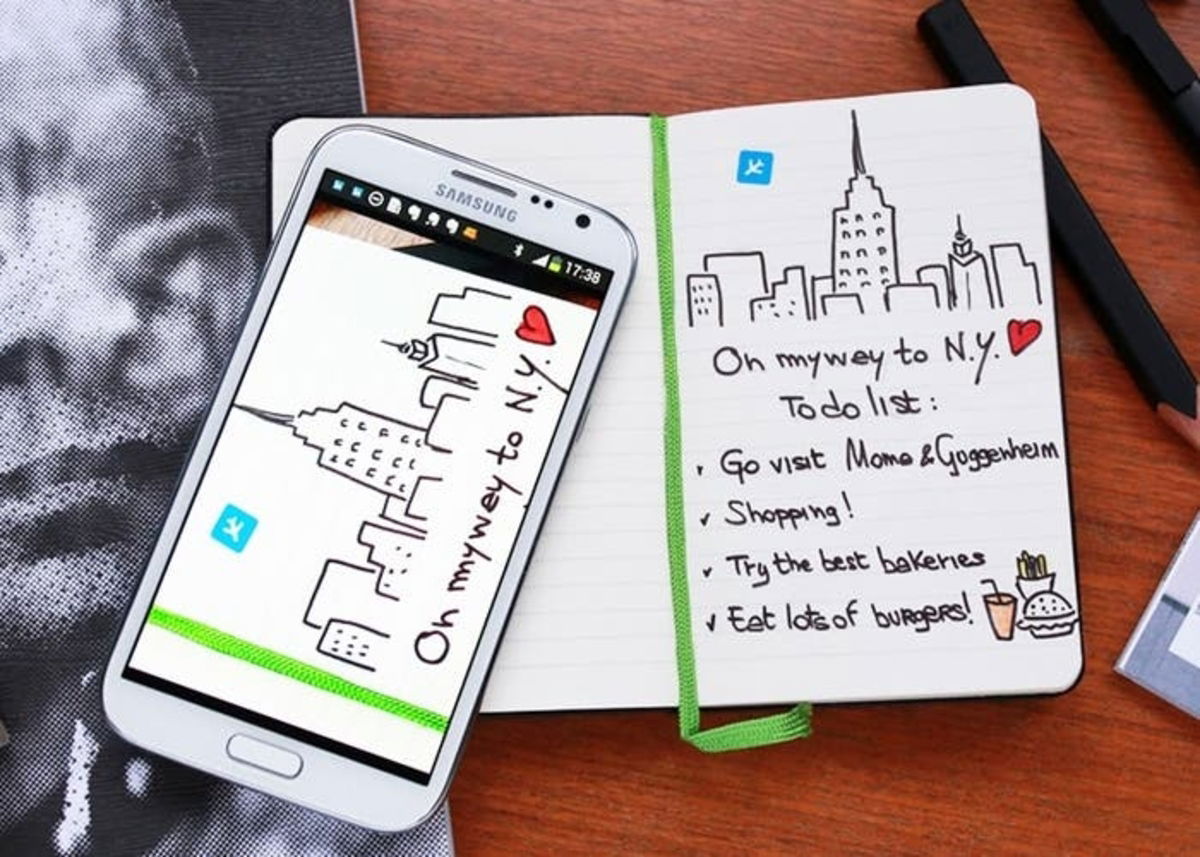 SAMSUNG
17:38
Oh mywey to N.Y.
Oh mywey to N.Y.
To do list:
Go visit Moma & Guggenheim
Shopping!
Try the best bakeries
Eat lots of burgers!